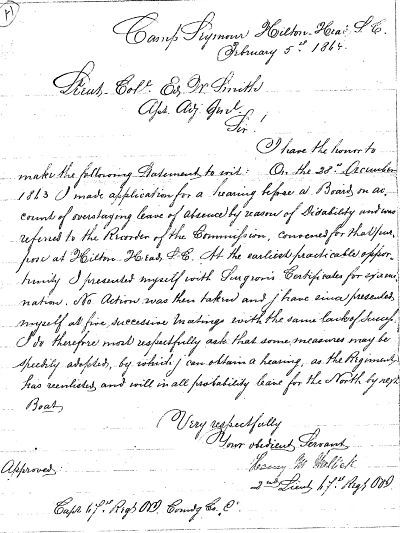 Camp Seymour Hilton-Head S.C.
February 5th 1864.
Lieut. Colo. Ed. W. Smith
Asst. Adj. Genl.
Sir!
I have the honor to
make the following Statement to wit: On the 28th December
1863 I made application for a hearing before a Board, on ac
count of overstaying leave of absence by reason of Disability and was
referred to the Recorder of the Commission, convened for that pur
pose at Hilton-Head, S.C. At the earliest practicable oppor-
tunity I presented myself with Surgeon's Certificates for exami
nation. No Action was then taken and I have since presented
myself at five successive meetings with the same lack of success.
I do therefore most respectfully ask that some measures may be
speedily adopted, by which I can obtain a hearing, as the Regiment
has reenlisted, and will in all probability leave for the North by next
Boat.
Very respectfully
Your obedient Servant
2nd Lieut 67th Regt OV
Approved.
Capt 67th Regt OV. Comdg Co. C.